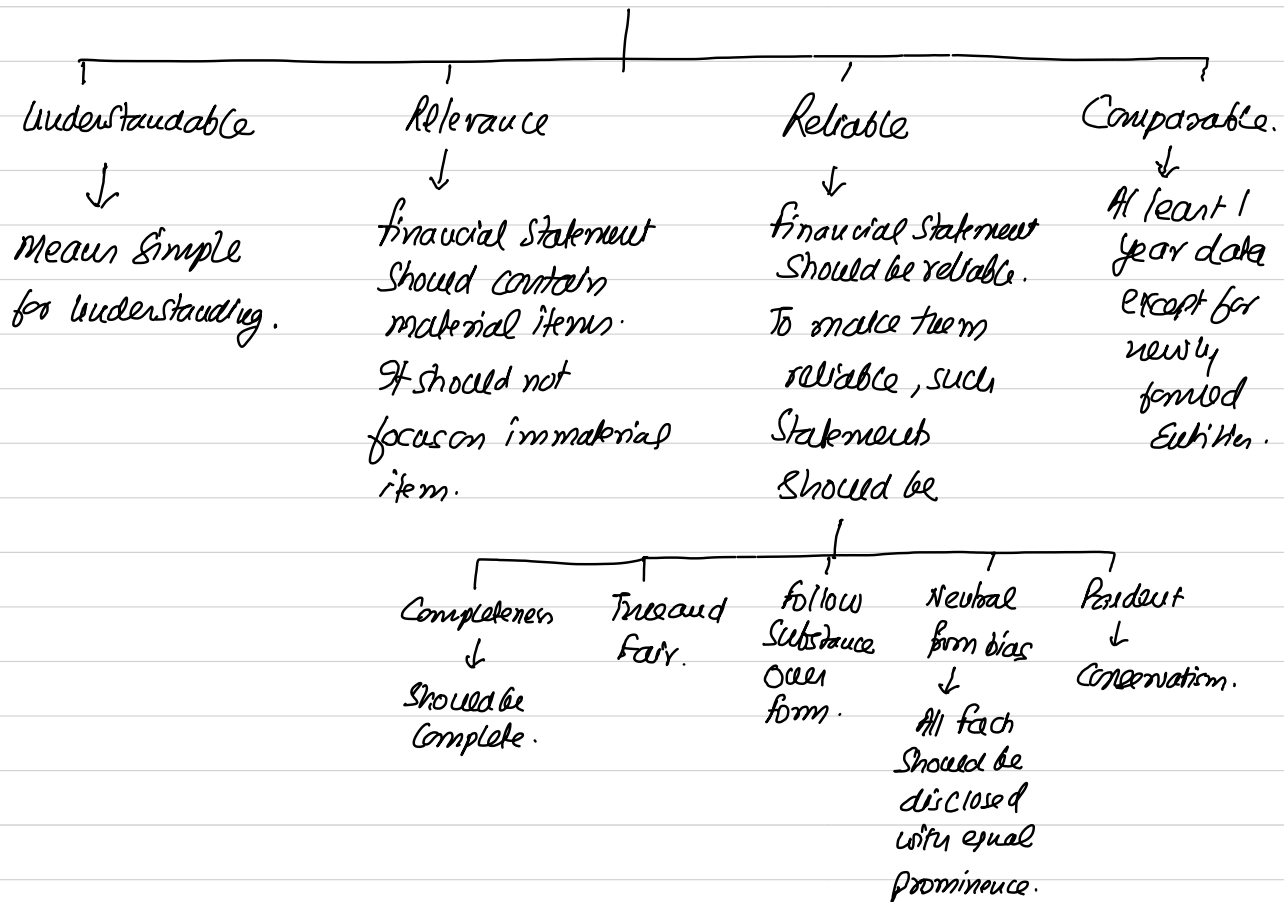 Understandable
Means Simple
for understanding.
Relevance
financial Statement
Should contain
material items.
It should not
focus on immaterial
item.
Reliable
financial Statement
Should be reliable.
To make them
reliable, such
Statements
Should be
Comparable.
At least 1
year data
except for
newly
formed
Entities.
Completeness
Should be
Complete.
True and
Fair.
Follow
Substance
over
form.
Neutral
from bias
All facts
Should be
disclosed
with equal
prominence.
Prudent
Conservatism.